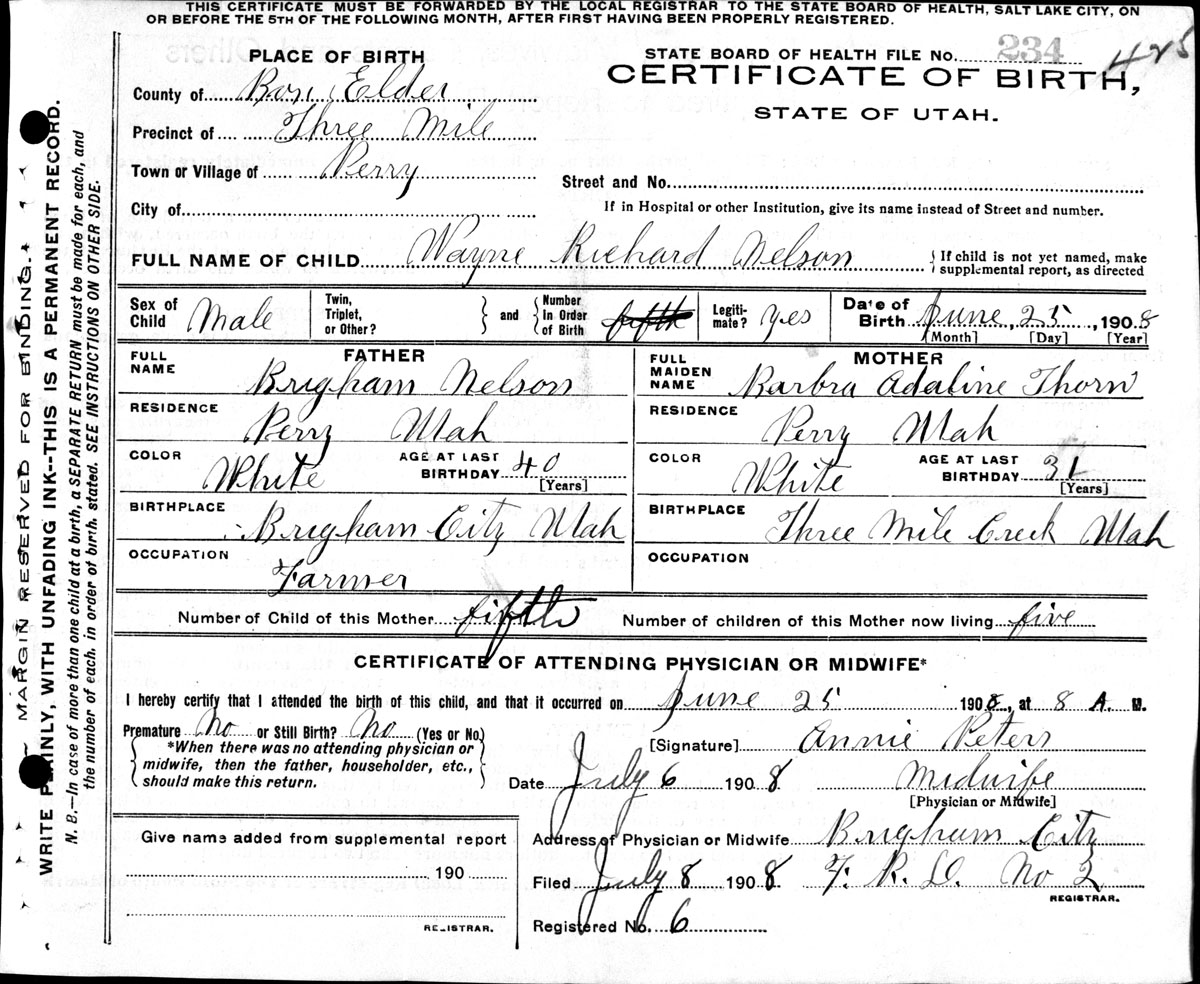 THIS CERTIFICATE MUST BE FORWARDED BY THE LOCAL REGISTRAR TO THE STATE BOARD OF HEALTH, SALT LAKE CITY, ON
OR BEFORE THE 5TH OF THE FOLLOWING MONTH, AFTER FIRST HAVING BEEN PROPERLY REGISTERED.
MARGIN RESERVED FOR BINDING.
WRITE PLAINLY, WITH UNFADING INK--THIS IS A PERMANENT RECORD.
N. B.--In case of more than one child at a birth, a SEPARATE RETURN must be made for each, and
the number of each, in order of birth, stated. SEE INSTRUCTIONS ON OTHER SIDE.
PLACE OF BIRTH
STATE BOARD OF HEALTH FILE No. 234 425
CERTIFICATE OF BIRTH,
STATE OF UTAH.
County of Box Elder
Precinct of Three Mile
Town or Village of Perry
Street and No.
City of
If in Hospital or other Institution, give its name instead of Street and number.
FULL NAME OF CHILD Wayne Richard Nelson
{ If child is not yet named, make
supplemental report, as directed
Sex of Child Male
Twin, Triplet, or Other?
} and {
Number In Order of Birth fifth
Legitimate? yes
Date of Birth June, 25, 1908
[Month] [Day] [Year]
FATHER
FULL NAME Brigham Nelson
RESIDENCE Perry Utah
COLOR White
AGE AT LAST BIRTHDAY 40 [Years]
BIRTHPLACE Brigham City Utah
OCCUPATION Farmer
MOTHER
FULL MAIDEN NAME Barbra Adaline Thorn
RESIDENCE Perry Utah
COLOR White
AGE AT LAST BIRTHDAY [Years]
BIRTHPLACE Three Mile Creek Utah
OCCUPATION
Number of Child of this Mother fifth
Number of children of this Mother now living five
CERTIFICATE OF ATTENDING PHYSICIAN OR MIDWIFE*
I hereby certify that I attended the birth of this child, and that it occurred on June 25 1908, at 8 A. M.
Premature No or Still Birth? No (Yes or No.)
{ *When there was no attending physician or
midwife, then the father, householder, etc.,
should make this return. }
[Signature] Annie Peters
Date July 6 1908 Midwife
[Physician or Midwife]
Give name added from supplemental report
190
REGISTRAR.
Address of Physician or Midwife Brigham City
Filed July 8 1908 F. R. D. No 2
REGISTRAR.
Registered No. 6